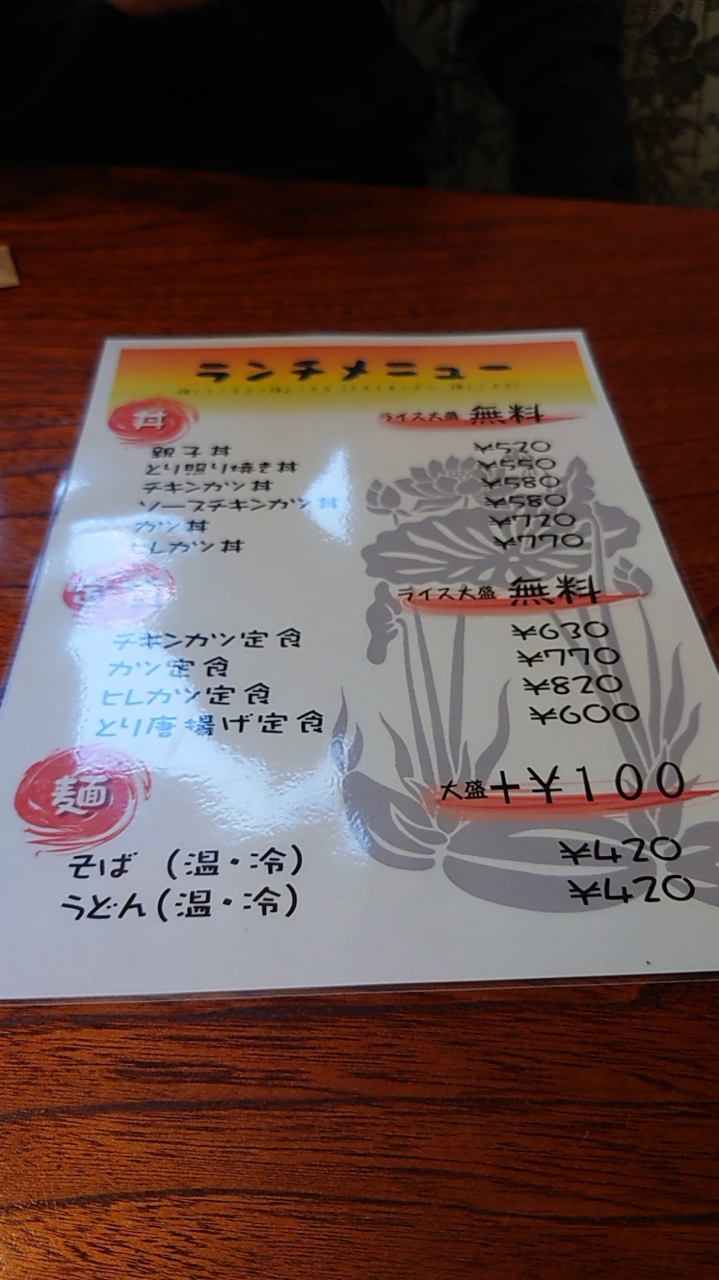 ランチメニュー
丼 ライス大盛 無料
親子丼 ¥520
とり照り焼き丼 ¥550
チキンカツ丼 ¥580
ソースチキンカツ丼 ¥580
カツ丼 ¥720
ヒレカツ丼 ¥770
定食 ライス大盛 無料
チキンカツ定食 ¥630
カツ定食 ¥770
ヒレカツ定食 ¥820
とり唐揚げ定食 ¥600
麺 大盛+¥100
そば (温・冷) ¥420
うどん(温・冷) ¥420